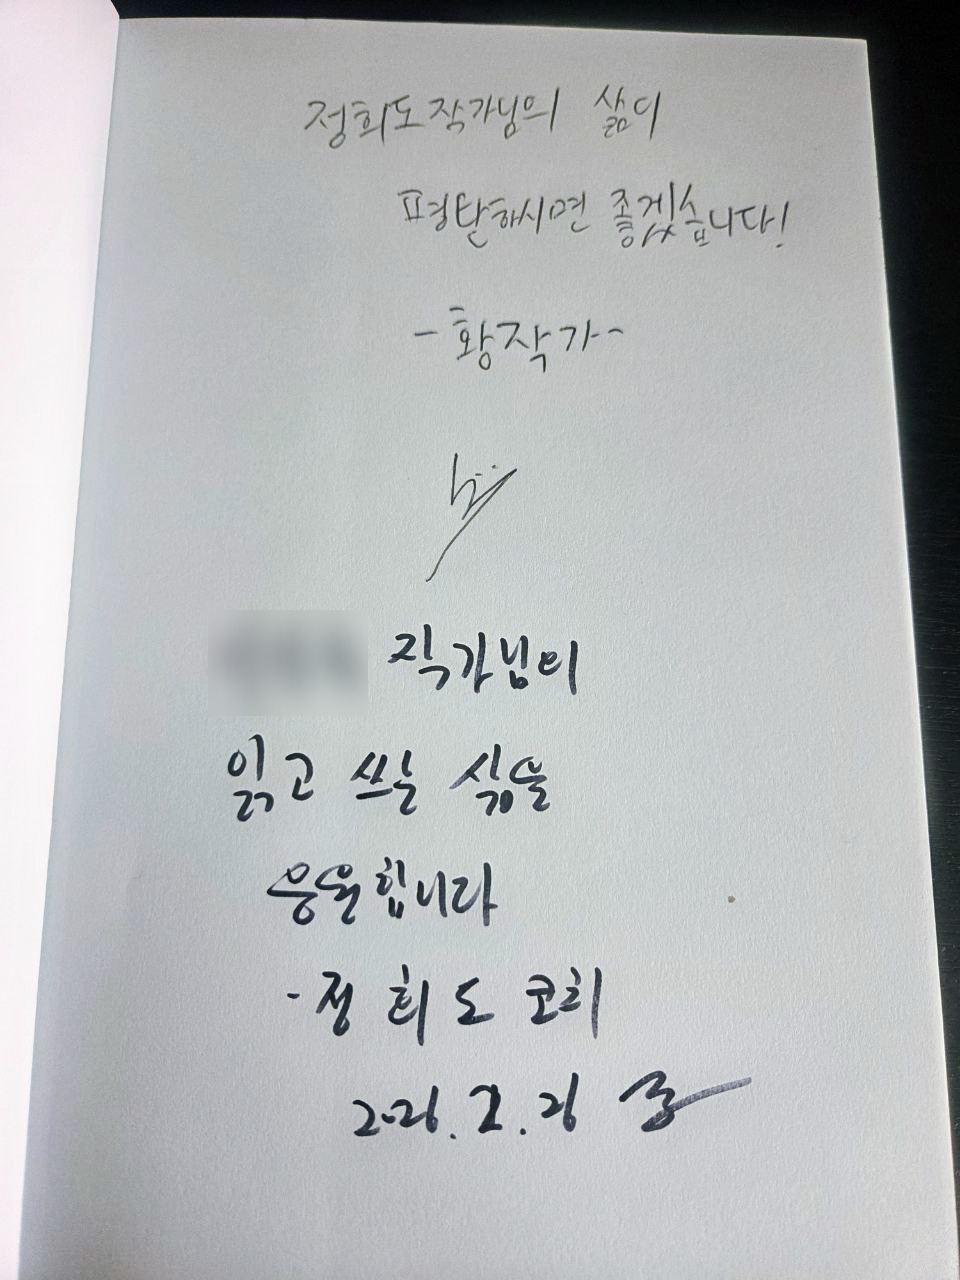 정희도작가님의 삶이
평탄하시면 좋겠습니다!
-황작가-
작가님이
읽고 쓰는 삶을
응원합니다
- 정희도 코치
2026. 2. 26